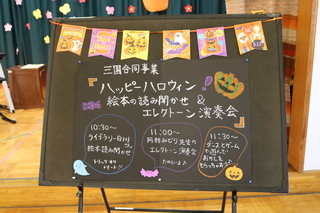 三園合同事業
『ハッピーハロウィン
絵本の読み聞かせ &
エレクトーン演奏会』
10:30～
ライブラリー白川
さん
絵本読み聞かせ
トリック オア
トリート!!
11:00～
阿部みどり先生の
エレクトーン演奏会
11:30～
ダンスとゲーム
を遊んで
おかしを
もらっちゃおう